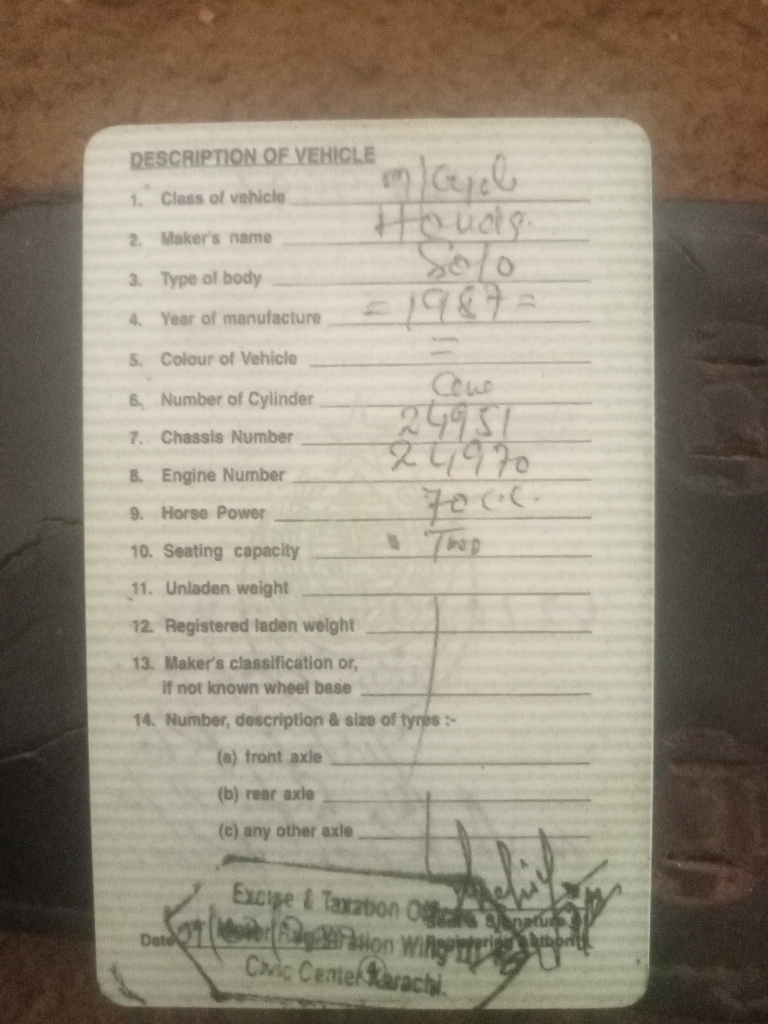 DESCRIPTION OF VEHICLE
1. Class of vehicle M/Cycle
2. Maker's name Honda
3. Type of body Solo
4. Year of manufacture =1987=
5. Colour of Vehicle =
6. Number of Cylinder
7. Chassis Number 24951
8. Engine Number 24970
9. Horse Power 70 C.C.
10. Seating capacity Two
11. Unladen weight
12. Registered laden weight
13. Maker's classification or,
if not known wheel base
14. Number, description & size of tyres :-
(a) front axle
(b) rear axle
(c) any other axle
Excise & Taxation
Seal & Signature
Date Motor Registration Wing
Registering Authority
Civic Center Karachi.